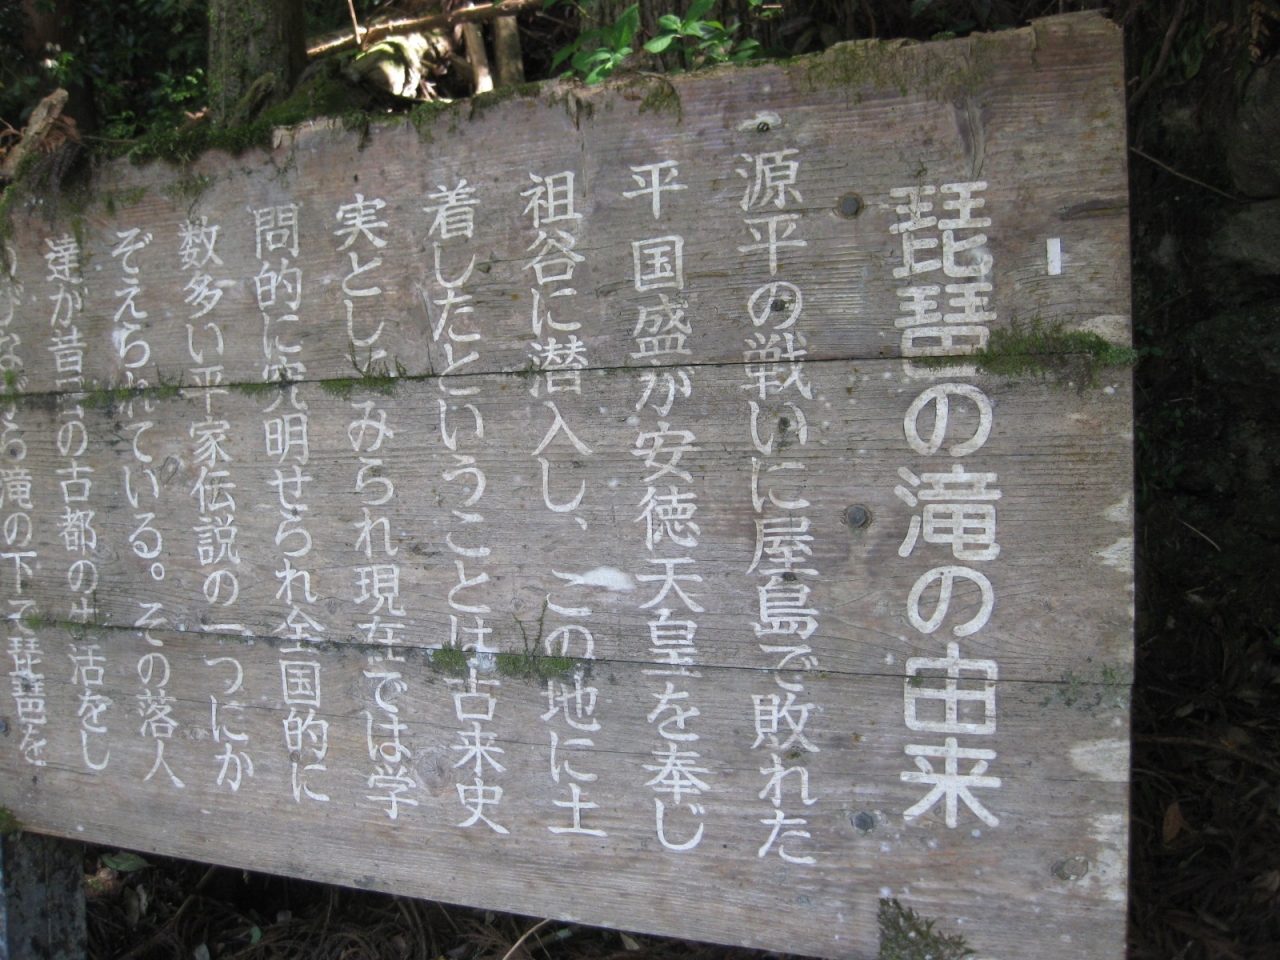 琵琶の滝の由来
源平の戦いに屋島で敗れた
平国盛が安徳天皇を奉じ
祖谷に潜入し、この地に土
着したということは古来史
実としてみられ現在では学
問的に究明せられ全国的に
数多い平家伝説の一つにか
ぞえられている。その落人
達が昔の古都の生活をし
のびながら滝の下で琵琶を